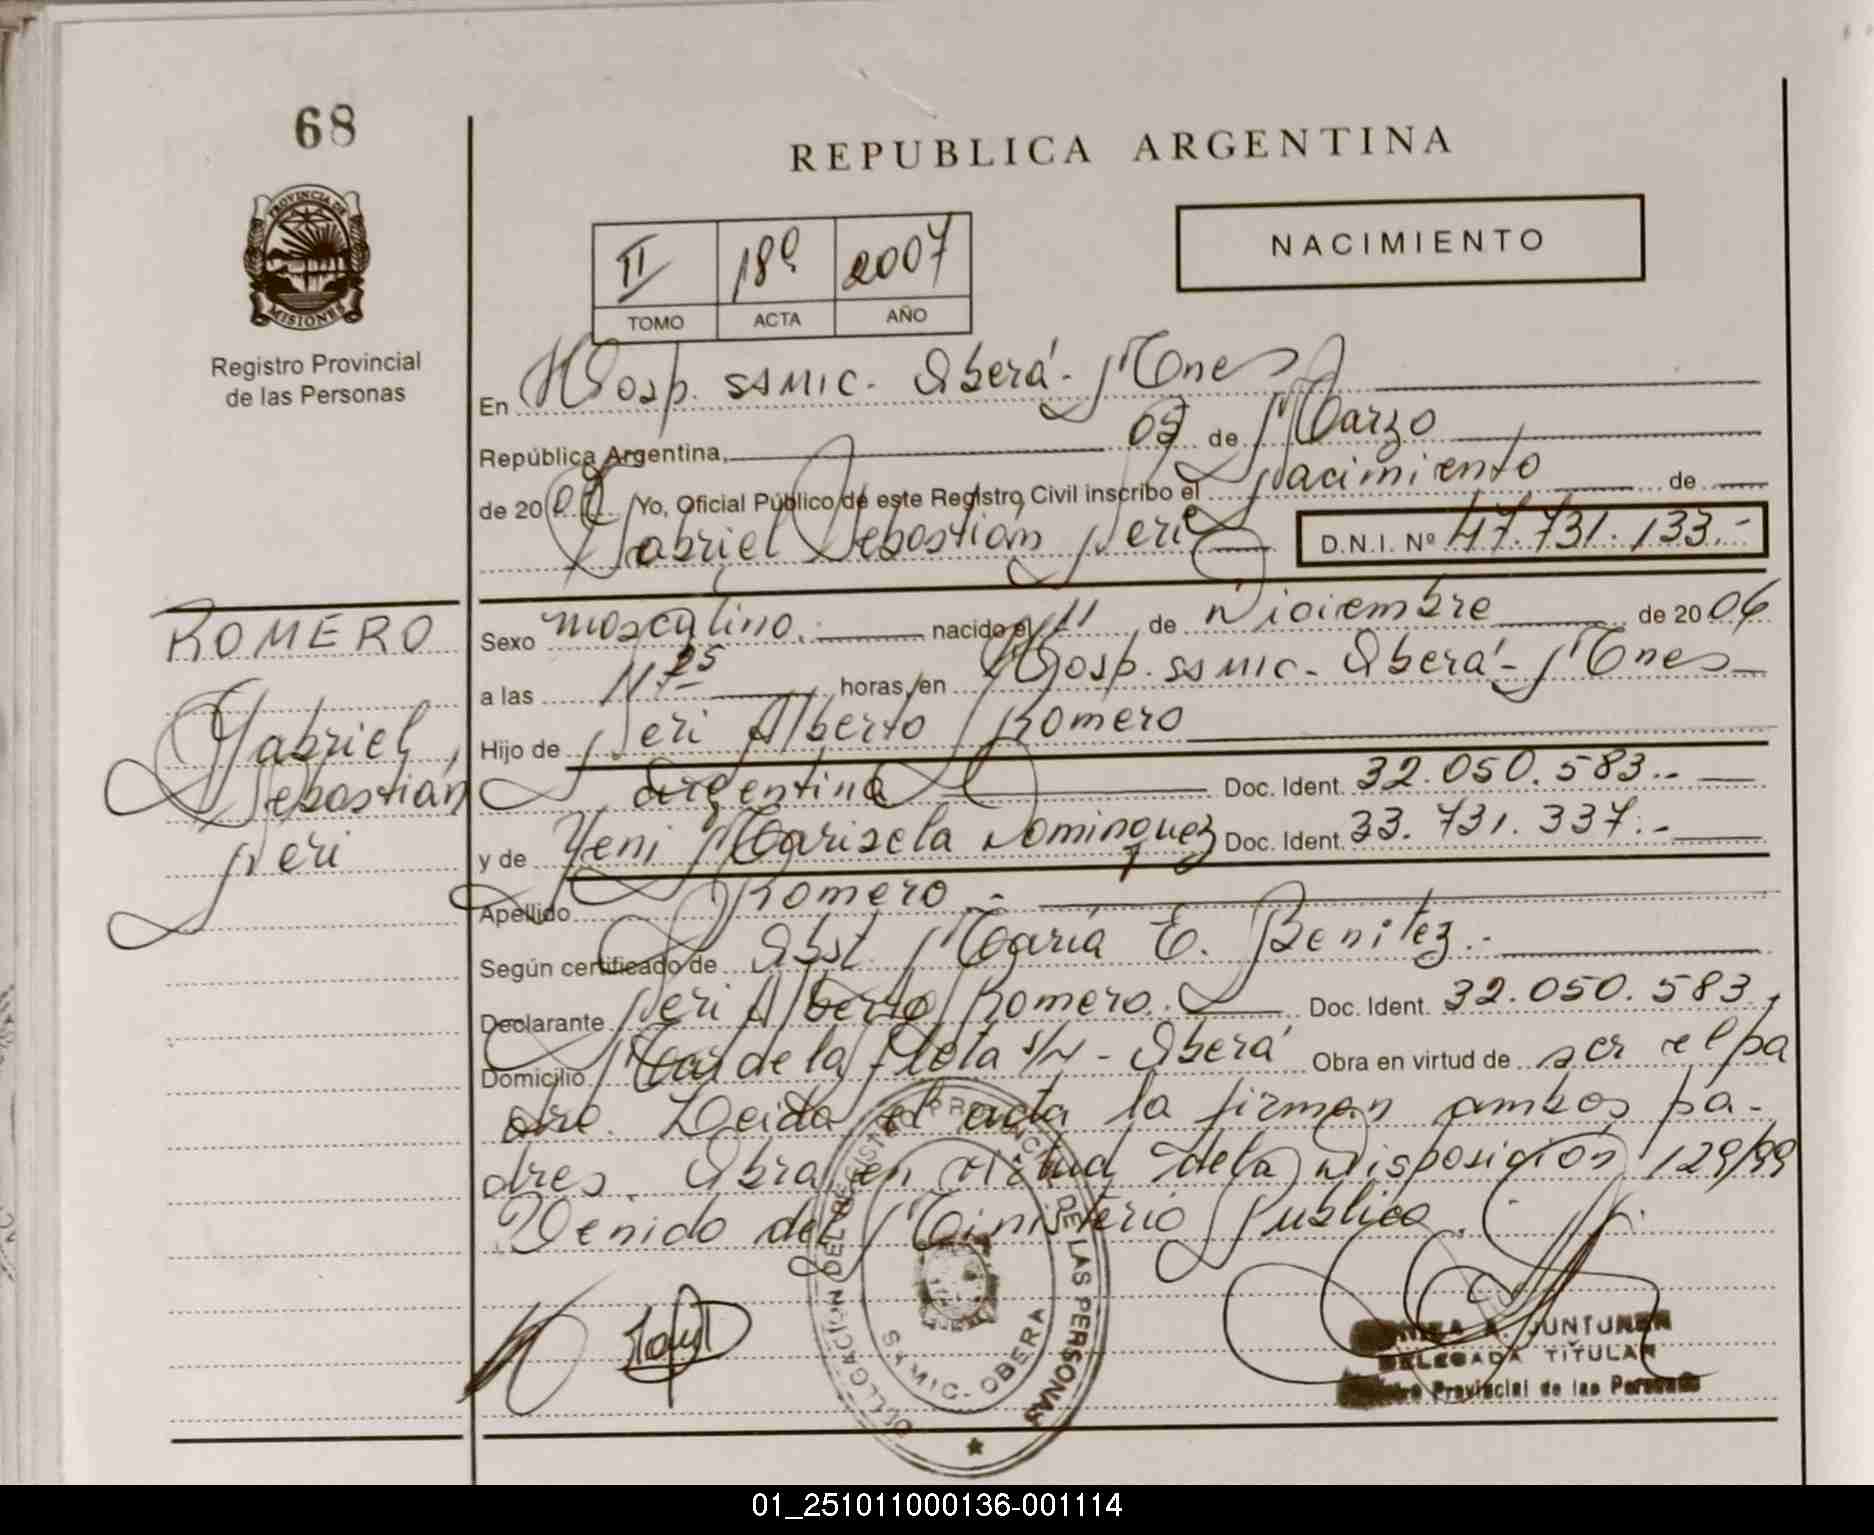 68
REPUBLICA ARGENTINA
PROVINCIA DE
MISIONES
Registro Provincial
de las Personas
II 189 2007
TOMO ACTA AÑO
NACIMIENTO
En Hosp. SAMIC. Oberá - Mnes
República Argentina, 03 de Marzo
de 2007 Yo, Oficial Público de este Registro Civil inscribo el Nacimiento de
Gabriel Sebastián Neri D.N.I. Nº 47.731.133.-
ROMERO
Gabriel
Sebastián
Neri
Sexo masculino. nacido el 11 de Diciembre de 2006
a las 11,25 horas, en Hosp. SAMIC - Oberá - Mnes
Hijo de Neri Alberto Romero
Argentina Doc. Ident. 32.050.583.-
y de Yeni Marisela Dominguez Doc. Ident. 33.731.337.-
Apellido Romero.-
Según certificado de Obst. María E. Benitez.-
Declarante Neri Alberto Romero. Doc. Ident. 32.050.583,
Domicilio Mar de la Plata s/N - Oberá Obra en virtud de ser el pa
dre. Leida el acta la firman ambos pa-
dres. Obra en virtud de la Disposición 129/99
Venido del Ministerio Publico.
DELEGACION DEL REGISTRO PROVINCIAL DE LAS PERSONAS
SAMIC - OBERA
A. JUNTUNEN
DELEGADA TITULAR
Provincial de las Personas
01_251011000136-001114